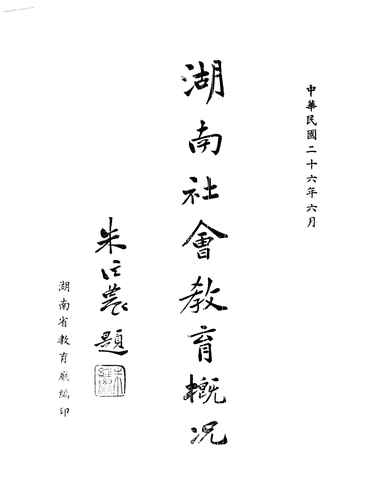 中華民國二十六年六月
湖南社會教育概况
朱经農題
湖南省教育廳編印